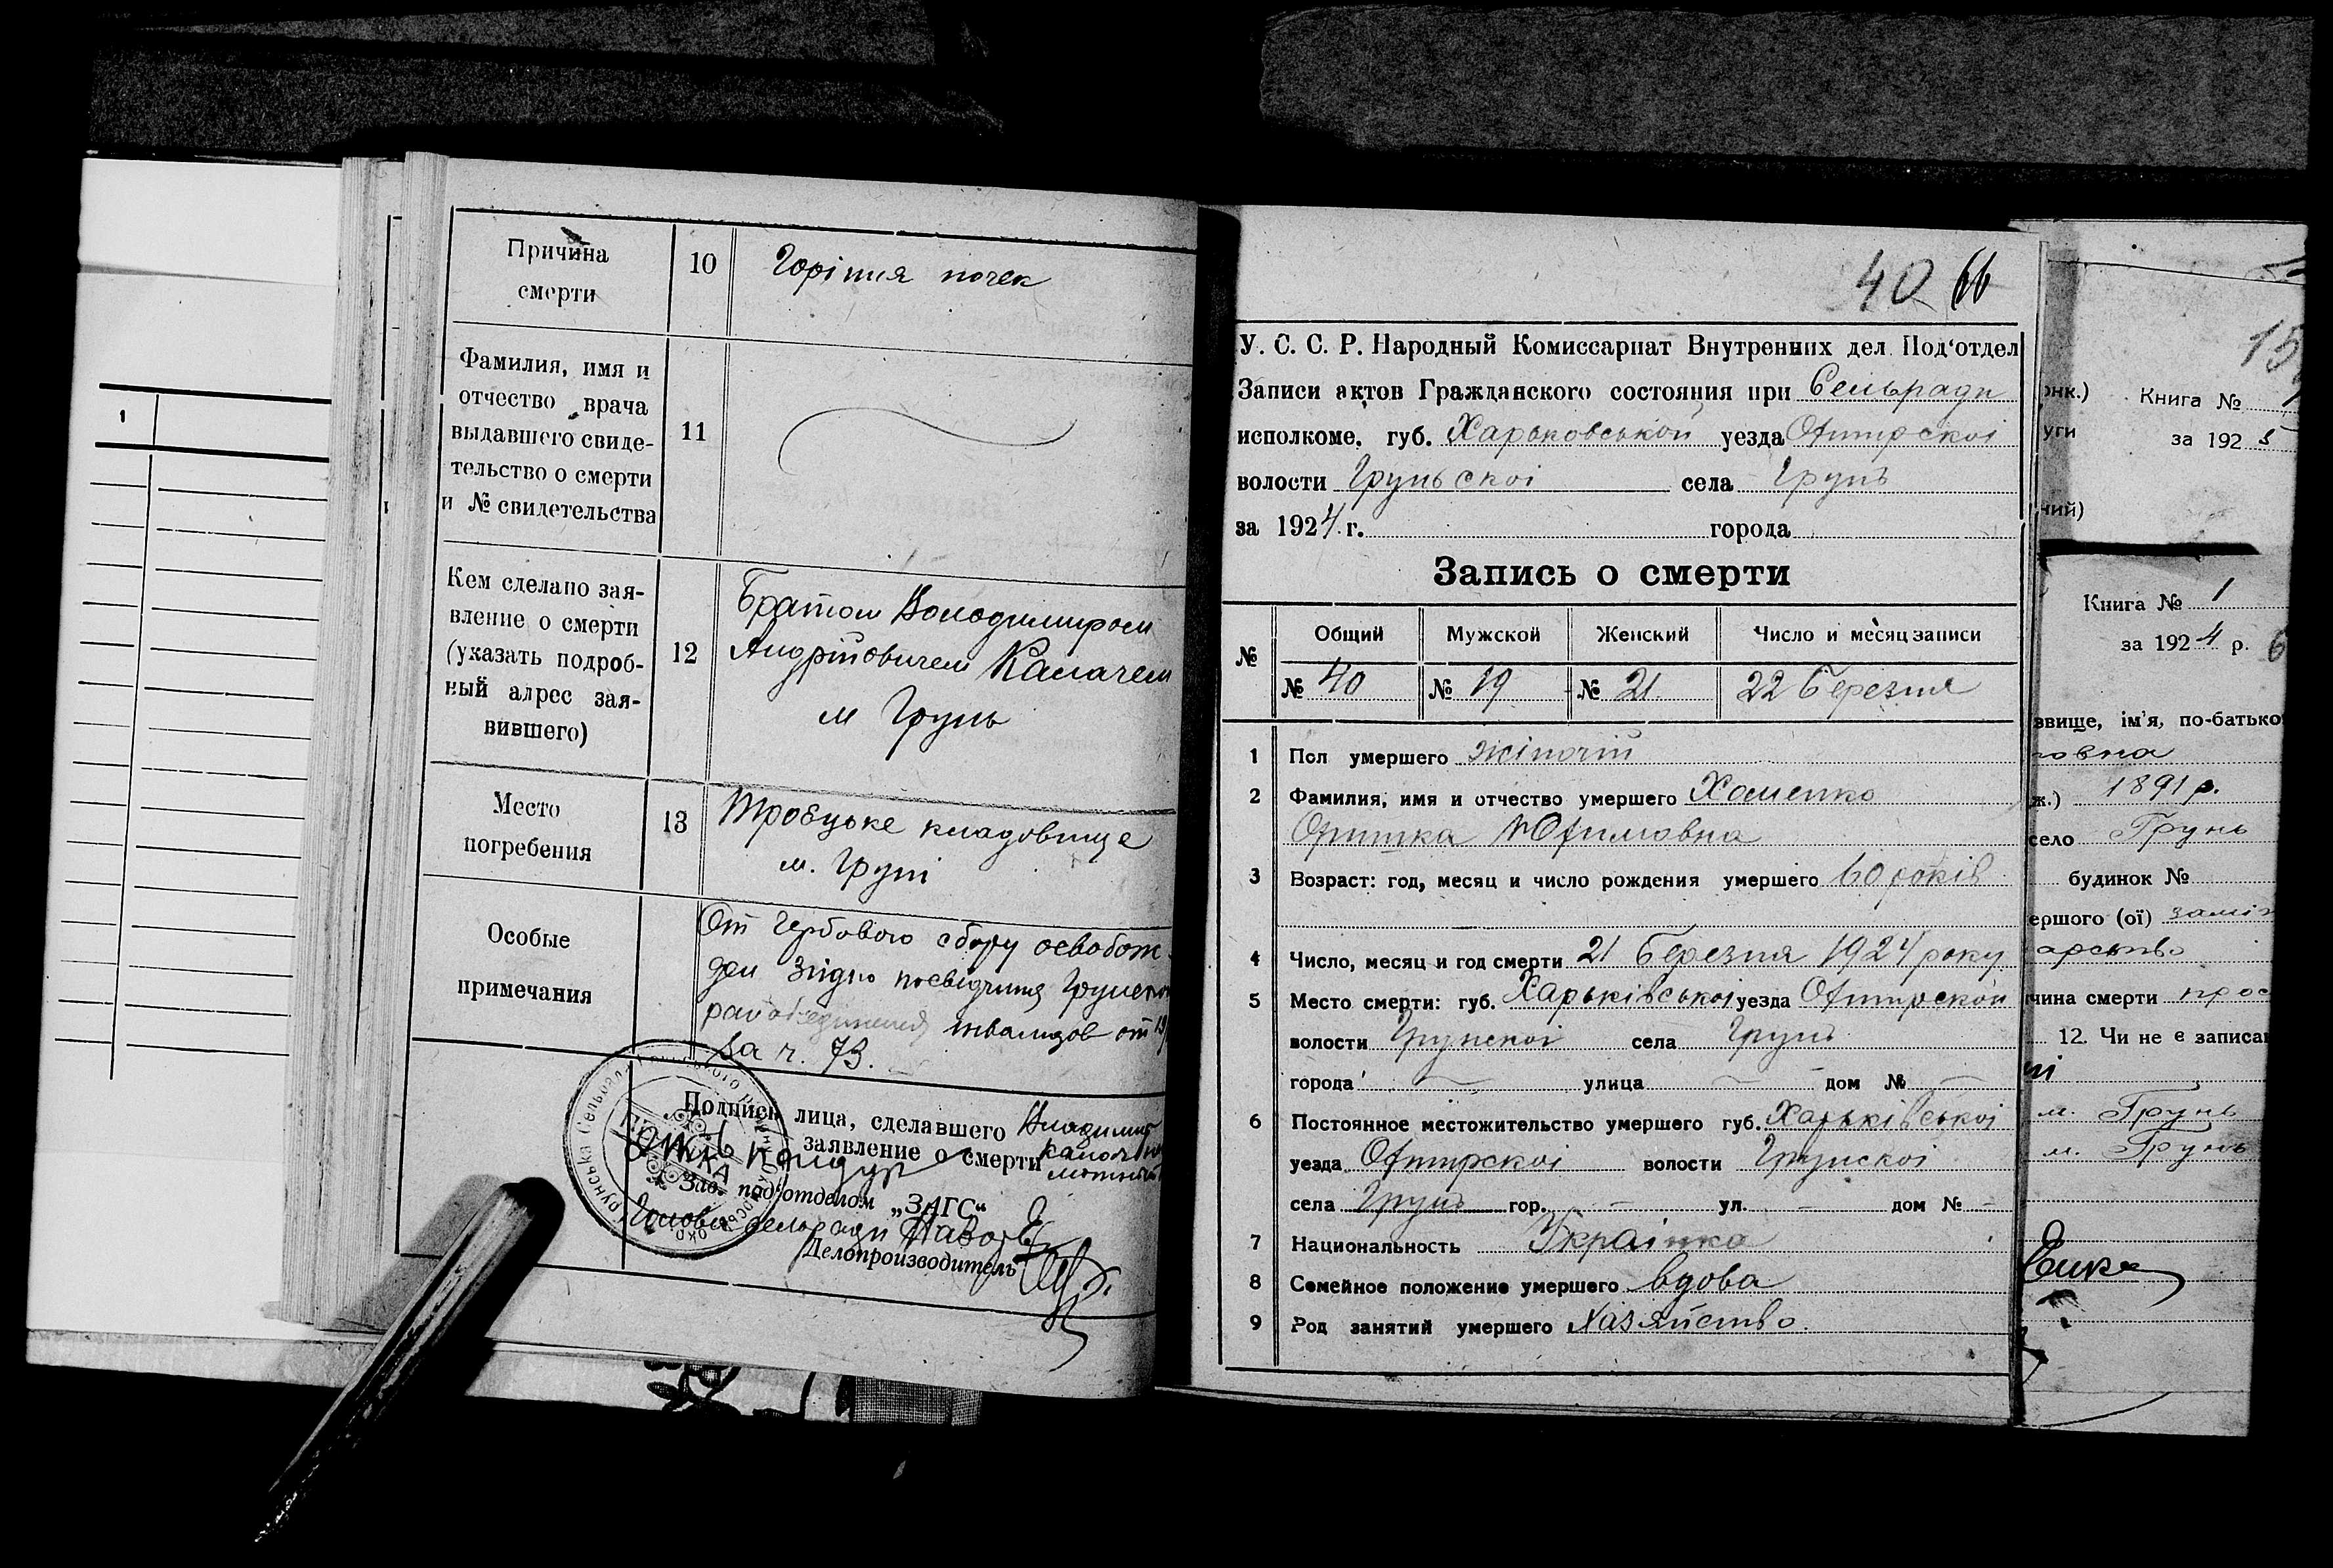 1
Причина
смерти
10
Горіння почек
Фамилия, имя и
отчество врача
выдавшего свиде-
тельство о смерти
и № свидетельства
11
Кем сделано зая-
вление о смерти
(указать подроб-
ный адрес зая-
вившего)
12
Братом Володимиром
Андрійовичем Калачем
м Грунь
Место
погребения
13
Тробцьке кладовище
м. Груні
Особые
примечания
От гербового сбору освобож-
ден згідно посвідчння
инвалидов от 19
за ч. 73.
Подпись лица, сделавшего Владимир
заявление о смерти
Зав. под‘отделом „ЗАГС“
Голова сельради
Делопроизводитель
40 66
У. С. С. Р. Народный Комиссариат Внутренних дел Под‘отдел
Записи актов Гражданского состояния при Сельради
исполкоме. губ. Харьковськой уезда Охтирскоі
волости Груньскоі села Грунь
за 1924 г. города
Запись о смерти
№ Общий Мужской Женский Число и месяц записи
№ 40 № 19 № 21 22 Березня
1 Пол умершего жіночій
2 Фамилия, имя и отчество умершего Хоменко
Оришка Юхимовна
3 Возраст: год, месяц и число рождения умершего 60 років
4 Число, месяц и год смерти 21 Березня 1924 року
5 Место смерти: губ. Харьківськоі уезда Охтирскои
волости Грунскоі села Грунь
города — улица — дом № —
6 Постоянное местожительство умершего губ. Харьківськоі
уезда Охтирскоі волости Грунскоі
села Грунь гор. – ул. – дом № –
7 Национальность Украінка
8 Семейное положение умершего вдова
9 Род занятий умершего Хазяйство.
15
онк.) Книга №
уги за 1925
ний)
Книга № 1
за 1924 р. 6
звище, ім'я, по-батько
ж.) 1891 р.
село Грунь
будинок №
ершого (ої) замі
арство
чина смерти
12. Чи не є записа
м. Грунь
м. Грунь